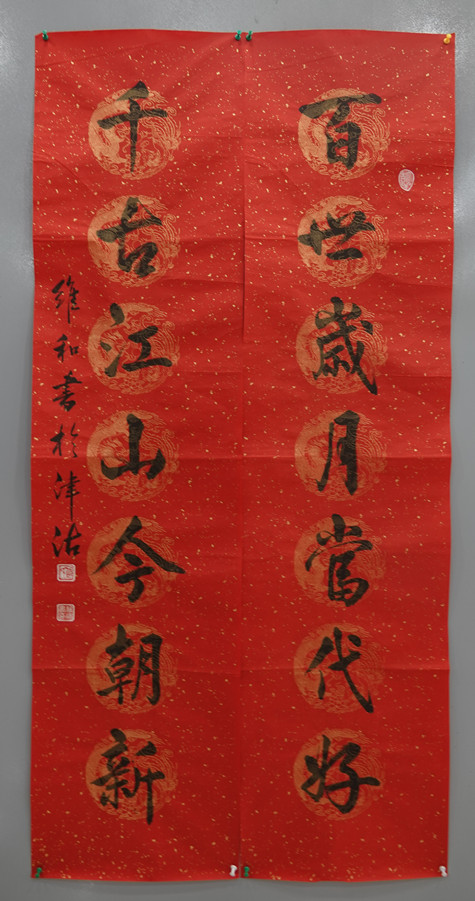 百世歲月當代好
千古江山今朝新
維和書於津沽